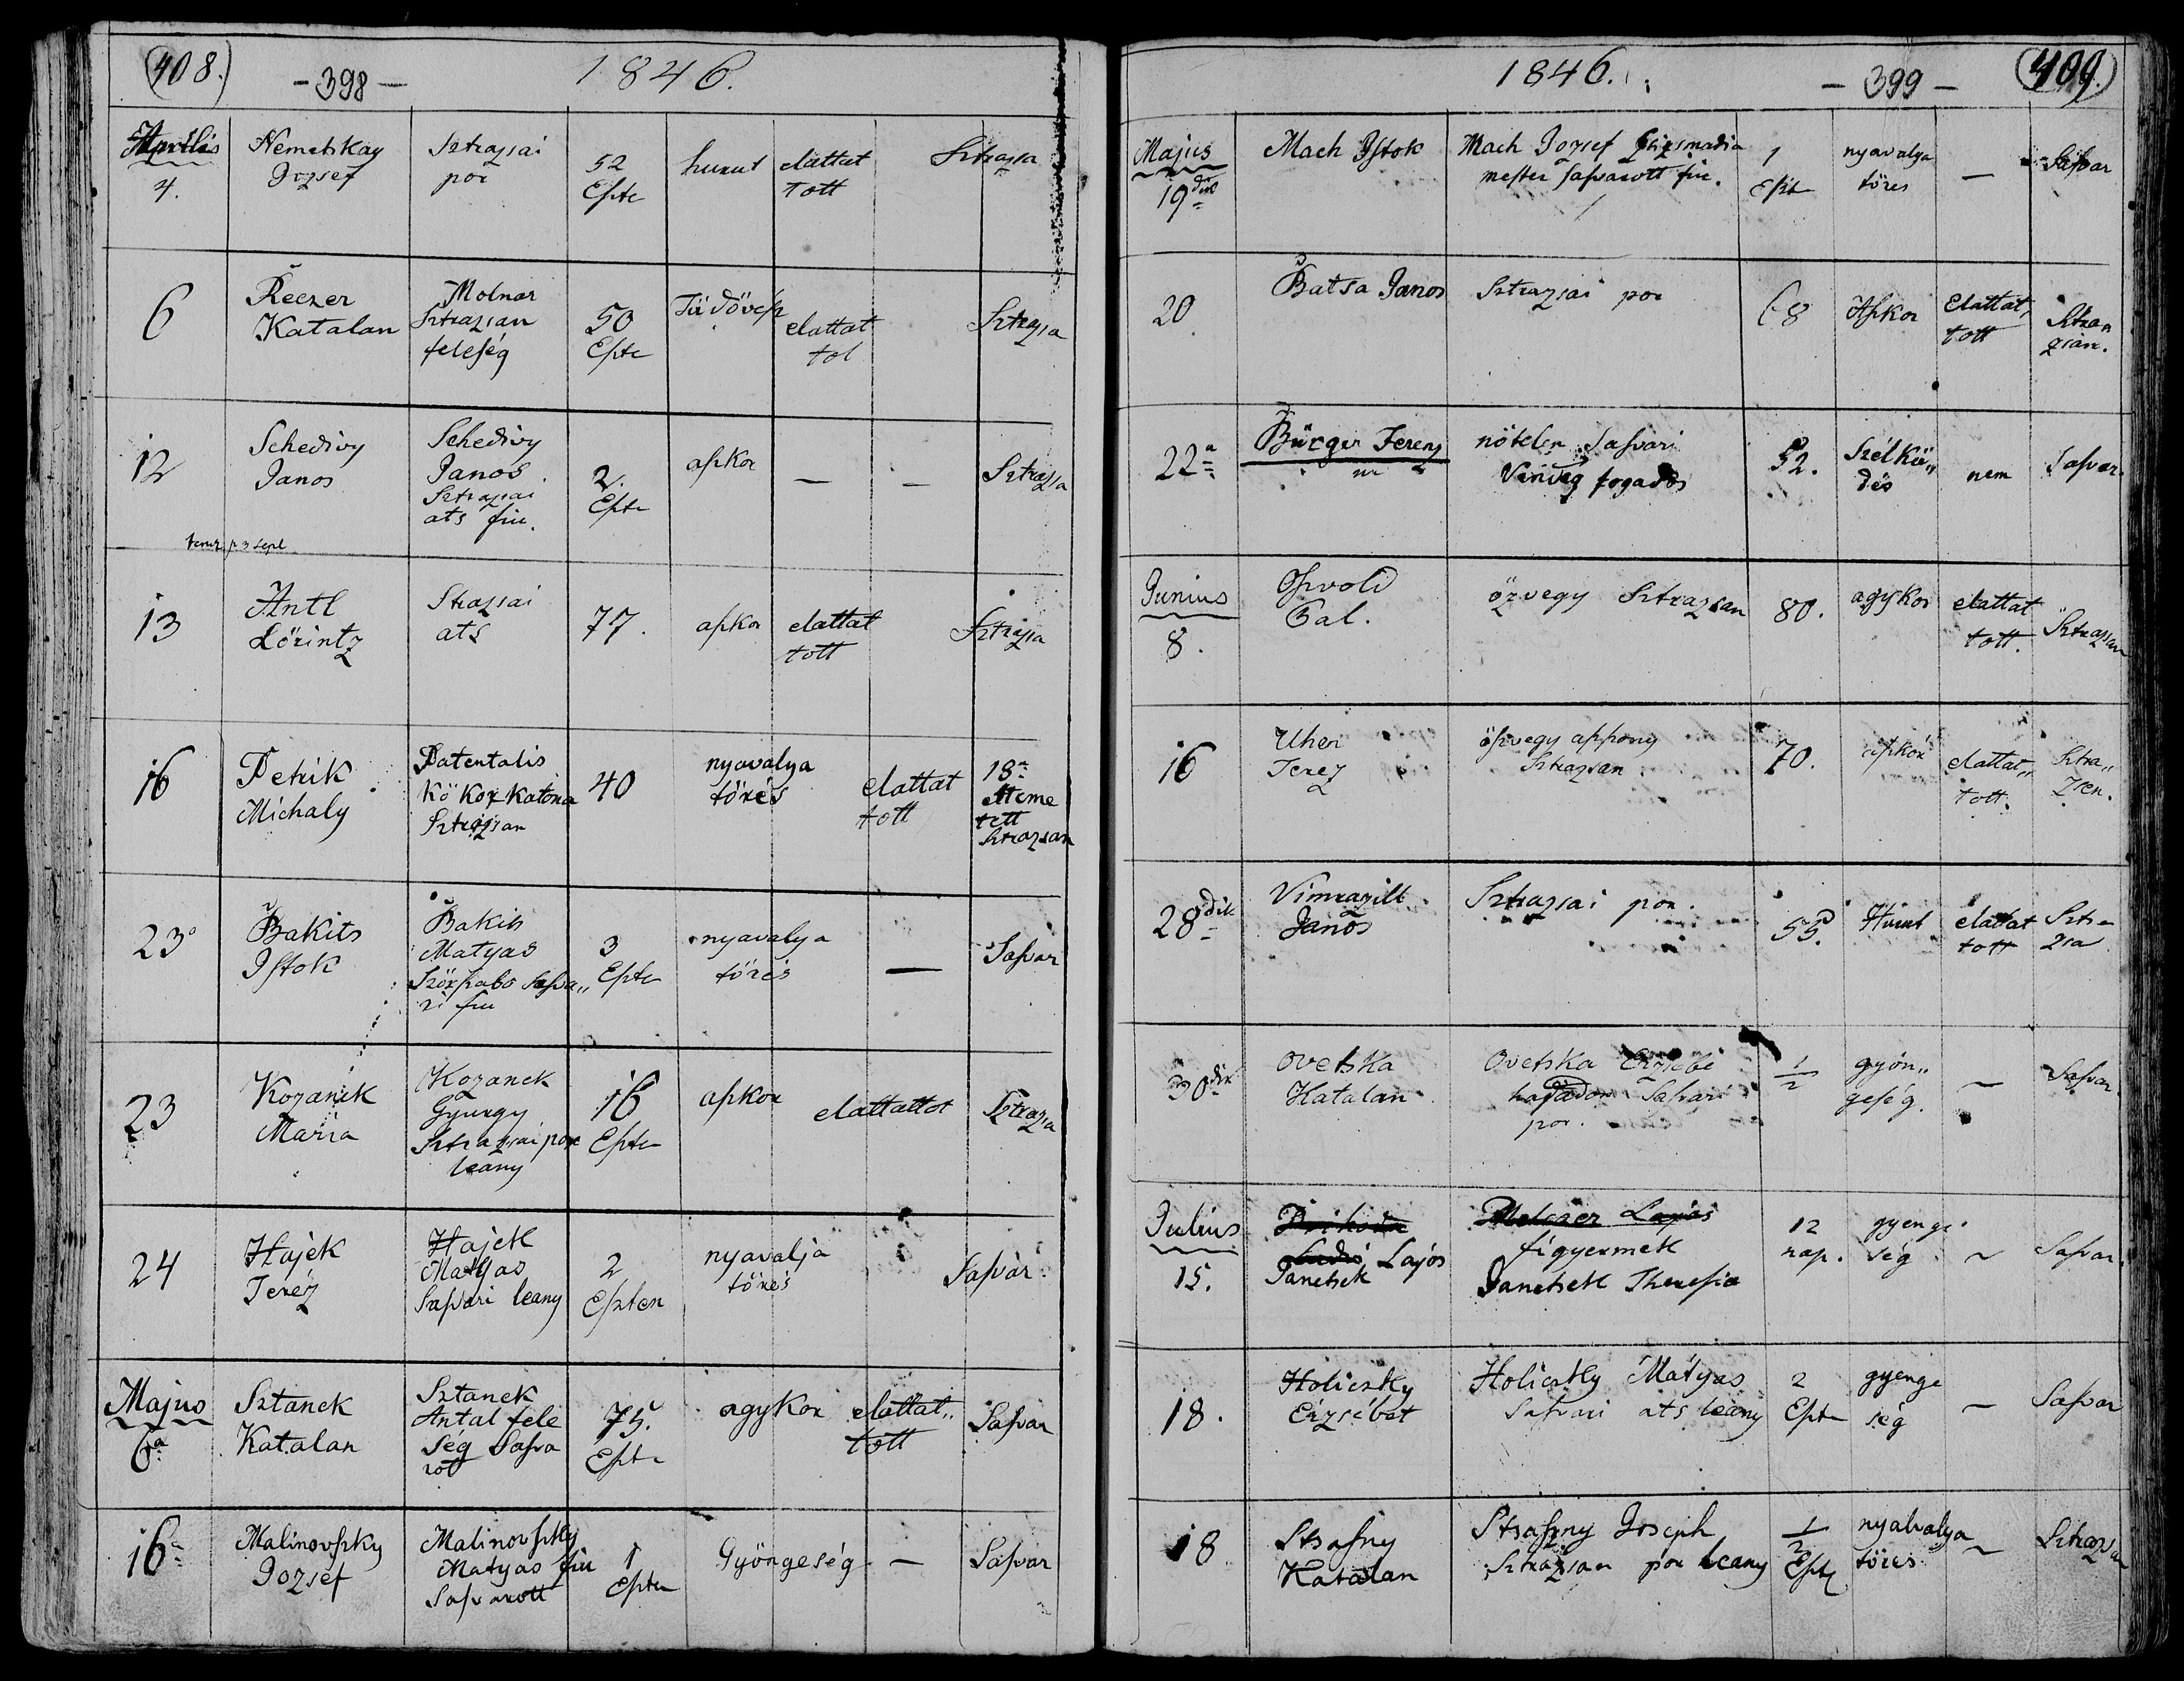 408.)
-398-
1846.
Aprilis
4.
Nemetskay
Jozsef
Sztrazsai
por
52
Eszte
hurut
elattat
tott
Sztrazsa
6
Reczer
Katalan
Molnar
Sztrazsan
feleség
50
Eszte
Tüdövész
elattat
tot
Sztrazsa
12
Schedivy
Janos
Schedivy
Janos
Sztrazsai
ats fiu.
2.
Eszte
aszkor
—
—
Sztrazsa
13
Antl
Lörintz
Strazsai
ats
77.
aszkor
elattat
tott
Sztrazsa
16
Petrik
Michaly
Patentalis
Sztrazsan
40
nyavalya
törés
elattat
tott
18a
elteme
tett
Sztrazsan
23a
Bakits
Istok
Bakits
Matyas
Szörszabo Sasva„
ri fiu
3
Eszte
nyavalya
törés
—
Sasvar
23
Kozanek
Maria
Kozanek
Gyurgy
Sztrazsai por
leany
16
Eszte
aszkor
elattattot
Sztrazsa
24
Hajek
Terez
Hajek
Matyas
Sasvari leany
2
Eszten
nyavalja
törés
Sasvar.
Majus
6a
Sztanek
Katalan
Sztanek
Antal fele
ség Sasva
rot
75.
Eszte
agykor
elattat„
tott
Sasvar
16a
Malinovszky
Jozsef
Malinovszky
Matyas fiu
Sasvarott
1
Eszten
Gyöngeség
—
Sasvar
1846.
-399-
409.)
Majus
19dik
Mach Istok
Mach Jozsef Csizsmadia
mester Sasvarott fiu.
1
Eszt
nyavalya
töres
—
Sasvar
20
Batsa Janos
Sztrazsai por
68
Aszkor
Elattat
tott
Sztra
zsan.
22a
Bürger Ferenz
nötelen Sasvari
Vendeg fogados
52.
Szélkü„
dés
nem
Sasvar.
Junius
8.
Oszvold
Pal.
özvegy Sztrazsan
80.
agykor
elattat
tott.
Sztrazsan
16
Uher
Terez
öszvegy aszszony
Sztrazsan
70.
aszkor
elattat„
tott.
Sztra„
zsan.
28dik
Janos
Sztrazsai por.
55.
Hurut
elattat
tott
Sztra
zsa
30dik
Ovetska
Katalan
Ovetska Erzsebe
hajadon Sasvari
por.
1/2
gyön„
geség.
—
Sasvar.
Julius
15.
Lajos
Janetsek
Melczer Lajos
figyermek
Janetsek Theresia
12
nap.
gyenge
ség
~
Sasvar.
18.
Holiczky
Erzsébet
Holiczky Mátyas
Sasvari ats leany
2
Eszte
gyenge
ség
—
Sasvar
18
Straszny
Katalan
Straszny Joseph
Sztrazsan por leany
1/2
Eszt
nyalvalya
töres
~
Sztrazsan